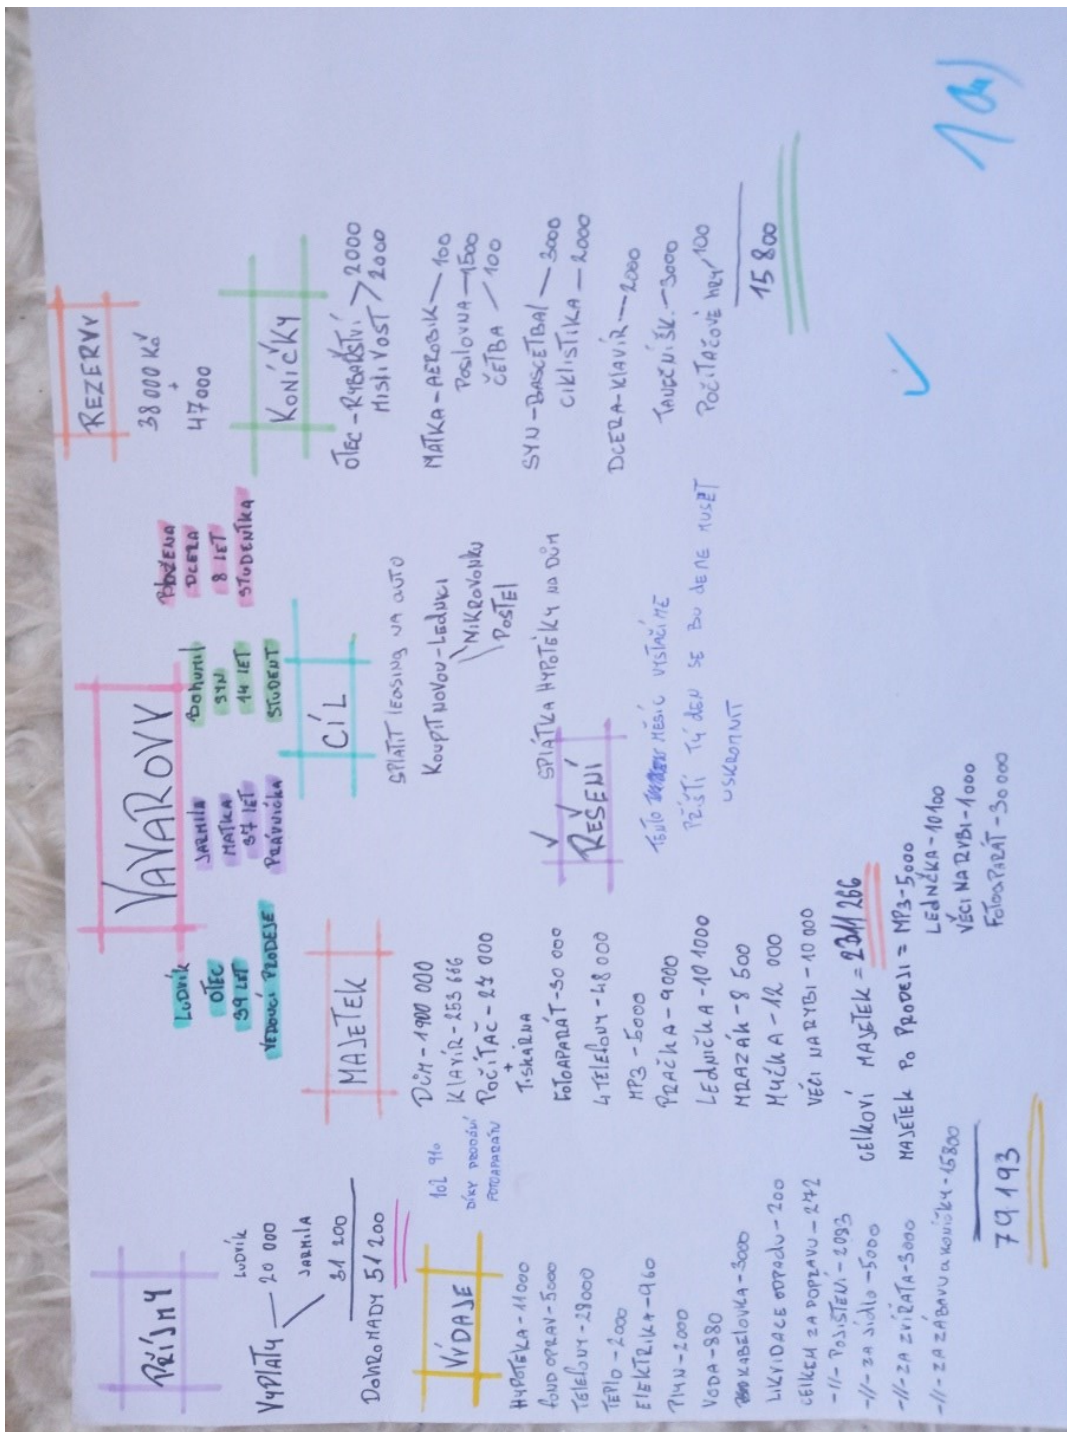 VAVAROVY
LUDVÍK
OTEC
39 LET
VEDOUCÍ PRODEJE
JARMILA
MATKA
37 LET
PRÁVNIČKA
Bohumil
SYN
14 LET
STUDENT
BOŽENA
DCERA
8 LET
STUDENTKA
REZERVY
38 000 Kč
+
47000
PŘÍJMY
VÝPLATY
LUDVÍK
20 000
JARMILA
31 200
DOHROMADY 51 200
VÍDAJE
102 910
DÍKY PRODÁNÍ
FOTOAPARÁTU
HYPOTÉKA - 11000
FOND OPRAV - 5000
TELEFONY - 28000
TEPLO - 2000
ELEKTRIKA - 960
PLYN - 2000
VODA - 880
KABELOVKA - 3000
LIKVIDACE ODPADU - 200
CELKEM ZA DOPRAVU - 272
-//- POJIŠTĚNÍ - 2093
-//- ZA JÍDLO - 5000
-//- ZA ZVÍŘATA - 3000
-//- ZA ZÁBAVU A KONÍČKY - 15800
79 193
MAJETEK
DŮM - 1900 000
KLAVÍR - 253 666
POČÍTAČ - 27 000
+
TISKÁRNA
FOTOAPARÁT - 30 000
4 TELEFONY - 48 000
MP3 - 5000
PRAČKA - 9000
LEDNIČKA - 10 1000
MRAZÁK - 8 500
MYČKA - 12 000
VĚCI NA RYBI - 10 000
CELKOVÍ MAJETEK = 2311 266
MAJETEK PO PRODEJI = MP3 - 5000
LEDNČKA - 10100
VĚCI NA RYBI - 1000
FOTOAPARÁT - 30 000
CÍL
SPLATIT LEASING NA AUTO
KOUPIT NOVOU - LEDNICI
MIKROVONKU
POSTEL
SPLÁTKA HYPOTÉKY NA DŮM
ŘEŠENÍ
TENTO MĚSÍC VYSTAČÍME
PŘÍŠTÍ TÝDEN SE BUDEME MUSET
USKROMNIT
KONÍČKY
OTEC - RYBAŘSTVÍ 2000
MISLIVOST 2000
MATKA - AEROBIK - 100
POSILOVNA - 1500
ČETBA 100
SYN - BASCETBAL - 3000
CIKLISTIKA - 2000
DCERA - KLAVÍR - 2000
TANEČNÍ ŠK. - 3000
POČÍTAČOVÉ HRY 100
15 800